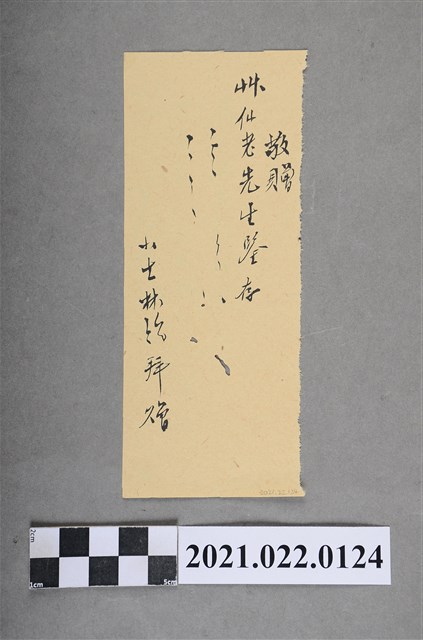 敬贈
艸仙老先生鑒存
小士林 拜贈
2021.022.0124
2cm
1cm
5cm